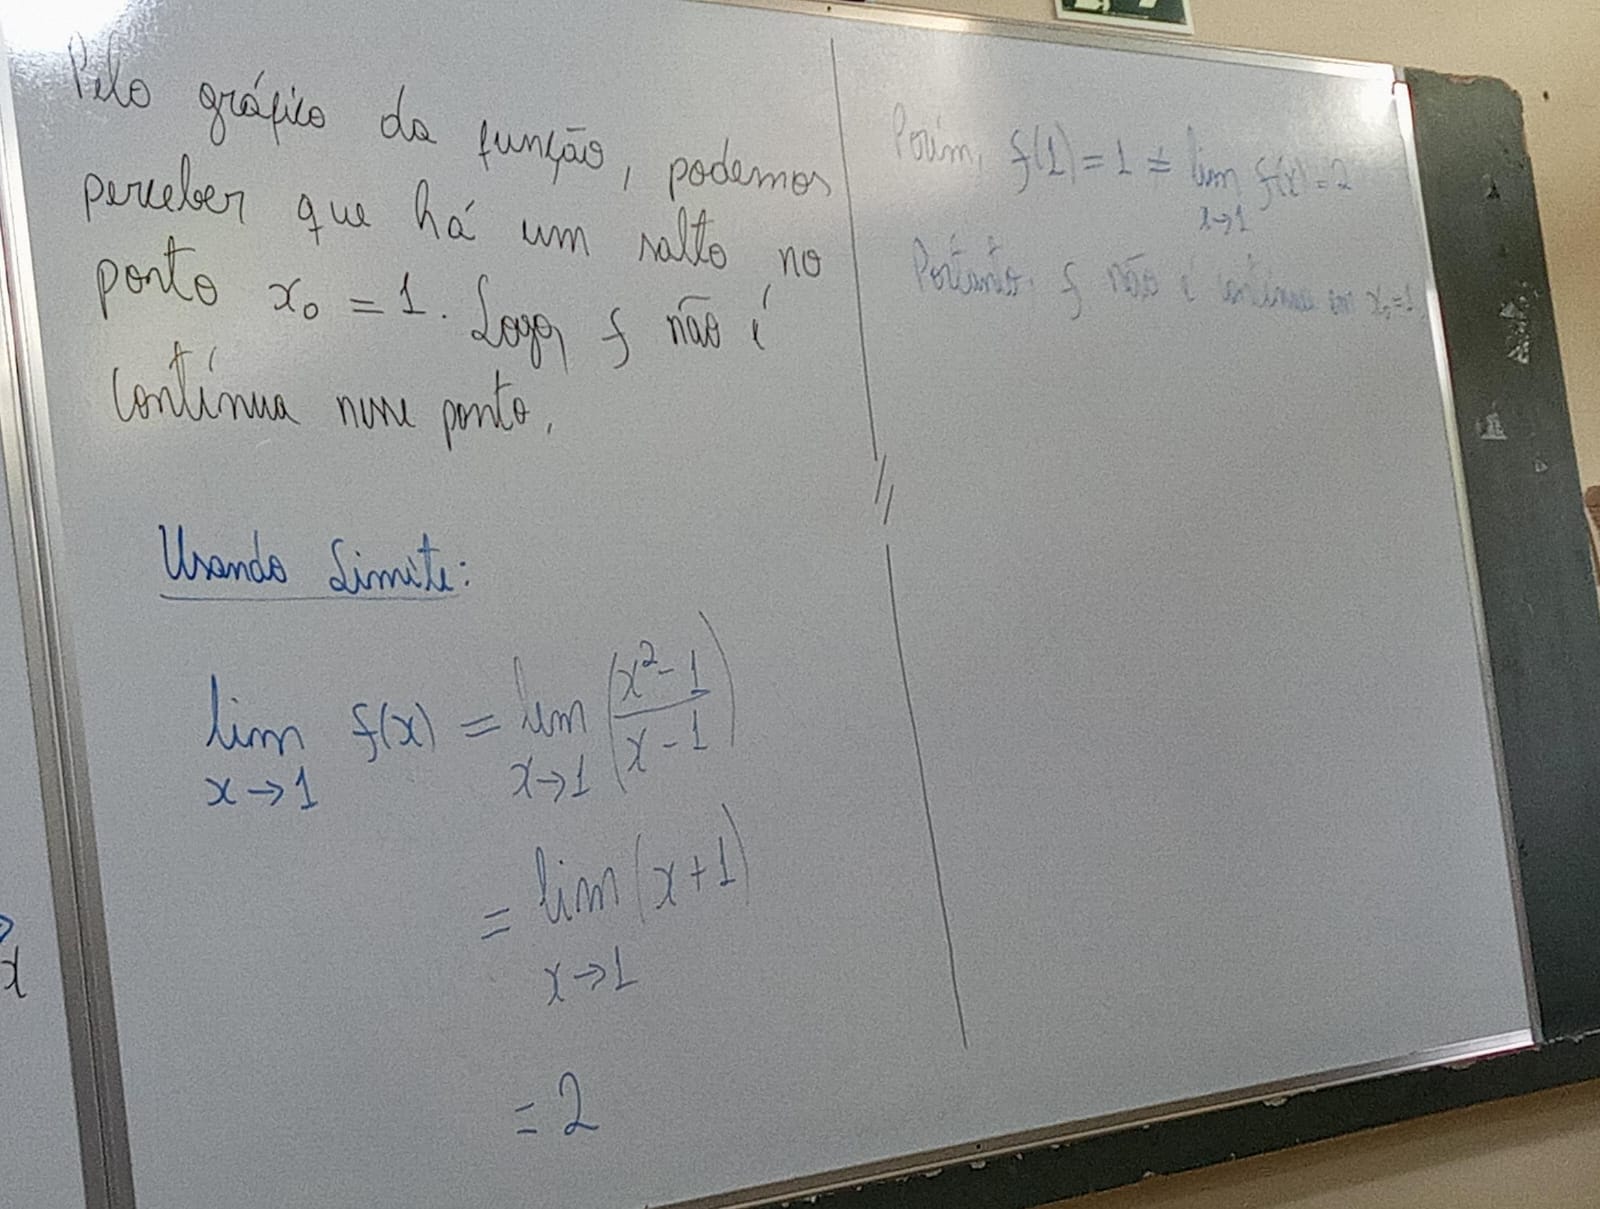 Pelo gráfico da função, podemos
perceber que há um salto no
ponto x₀ = 1. Logo, f não é
contínua nesse ponto.
Usando Limite:
lim f(x) = lim (x²-1 / x-1)
x→1 x→1
= lim (x+1)
x→1
= 2
Porém, f(1) = 1 ≠ lim f(x) = 2
x→1
Portanto, f não é contínua em x₀=1.
x